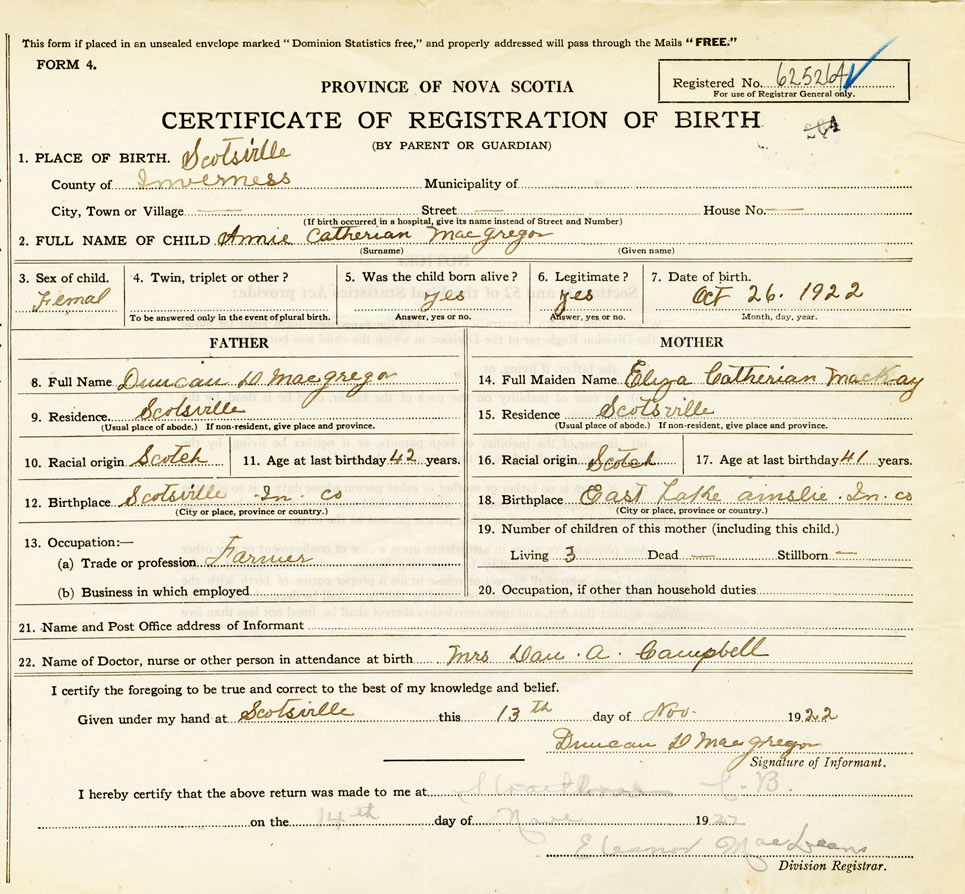 This form if placed in an unsealed envelope marked "Dominion Statistics free," and properly addressed will pass through the Mails "FREE."
FORM 4.
Registered No. 625264
For use of Registrar General only.
PROVINCE OF NOVA SCOTIA
CERTIFICATE OF REGISTRATION OF BIRTH
(BY PARENT OR GUARDIAN)
1. PLACE OF BIRTH. Scotsville
County of Inverness Municipality of
City, Town or Village — Street — House No. —
(If birth occurred in a hospital, give its name instead of Street and Number)
2. FULL NAME OF CHILD Annie Catherian MacGregor
(Surname) (Given name)
3. Sex of child. 4. Twin, triplet or other? 5. Was the child born alive? 6. Legitimate? 7. Date of birth.
Femal yes yes Oct 26. 1922
To be answered only in the event of plural birth. Answer, yes or no. Answer, yes or no. Month, day, year.
FATHER MOTHER
8. Full Name Duncan D MacGregor 14. Full Maiden Name Eliza Catherian MacKay
9. Residence. Scotsville 15. Residence Scotsville
(Usual place of abode.) If non-resident, give place and province. (Usual place of abode.) If non-resident, give place and province.
10. Racial origin Scotch 11. Age at last birthday 42 years. 16. Racial origin Scotch 17. Age at last birthday 41 years.
12. Birthplace Scotsville In. co 18. Birthplace East Lake ainslie. In. co
(City or place, province or country.) (City or place, province or country.)
19. Number of children of this mother (including this child.)
13. Occupation:—
(a) Trade or profession Farmer Living 3 Dead — Stillborn —
(b) Business in which employed 20. Occupation, if other than household duties
21. Name and Post Office address of Informant
22. Name of Doctor, nurse or other person in attendance at birth Mrs Dan. A. Campbell
I certify the foregoing to be true and correct to the best of my knowledge and belief.
Given under my hand at Scotsville this 13th day of Nov. 1922
Duncan D MacGregor
Signature of Informant.
I hereby certify that the above return was made to me at C. B.
on the 14th day of Nov 1922
Eleanor MacLean
Division Registrar.